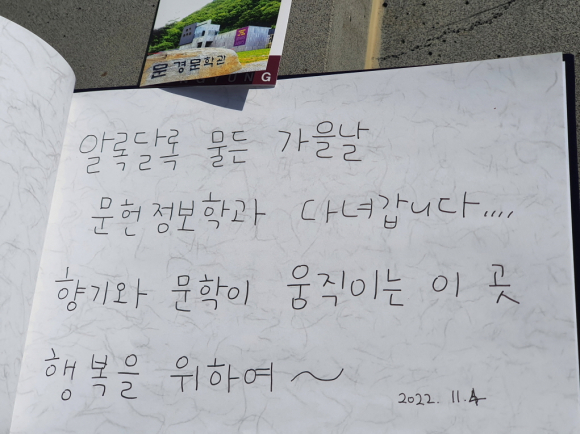 문경문학관
G
알록달록 물든 가을날
문헌정보학과 다녀갑니다....
향기와 문학이 움직이는 이 곳
행복을 위하여~
2022. 11. 4